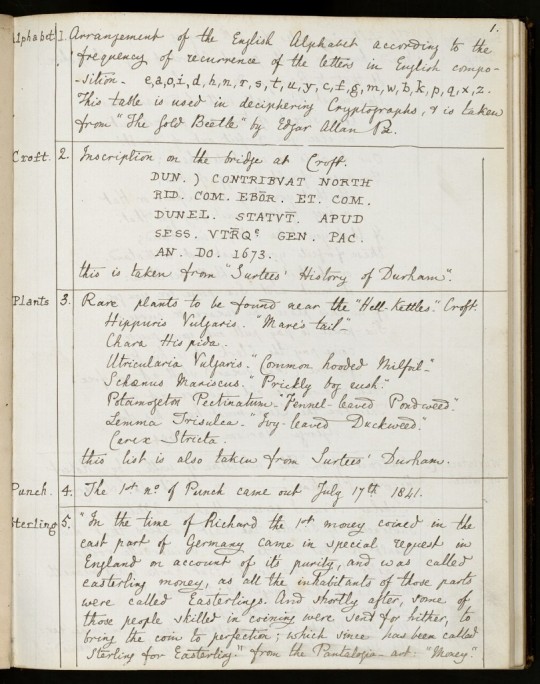 1.
Alphabet 1. Arrangement of the English Alphabet according to the
frequency of recurrence of the letters in English compo-
-sition. e,a,o,i,d,h,n,r,s,t,u,y,c,f,g,m,w,b,k,p,q,x,z.
This table is used in deciphering Cryptographs, & is taken
from "The Gold Beetle" by Edgar Allan Poe.
Croft 2. Inscription on the bridge at Croft.
DUN. ) CONTRIBVAT NORTH
RID. COM. EBŌR. ET. COM.
DUNEL. STATVT̄. APUD
SESS. VTR̄Qᵉ GEN. PAC.
AN. DO. 1673.
this is taken from "Surtees' History of Durham".
Plants 3. Rare plants to be found near the "Hell-Kettles." Croft.
Hippuris Vulgaris. "Mare's tail"
Chara Hispida.
Utricularia Vulgaris. "Common hooded Milfoil."
Schænus Mariscus. "Prickly bog rush."
Potamogeton Pectinatum. "Fennel-leaved Pondweed."
Lemma Trisulca. "Ivy-leaved Duckweed."
Carex Stricta.
this list is also taken from Surtees' Durham.
Punch. 4. The 1st no. of Punch came out July 17th 1841.
Sterling 5. "In the time of Richard the 1st money coined in the
east part of Germany came in special request in
England on account of its purity, and was called
easterling money, as all the inhabitants of those parts
were called Easterlings. And shortly after, some of
those people skilled in coining were sent for hither, to
bring the coin to perfection; which since has been called
Sterling for Easterling." from the Pantalogia- art: "Money."